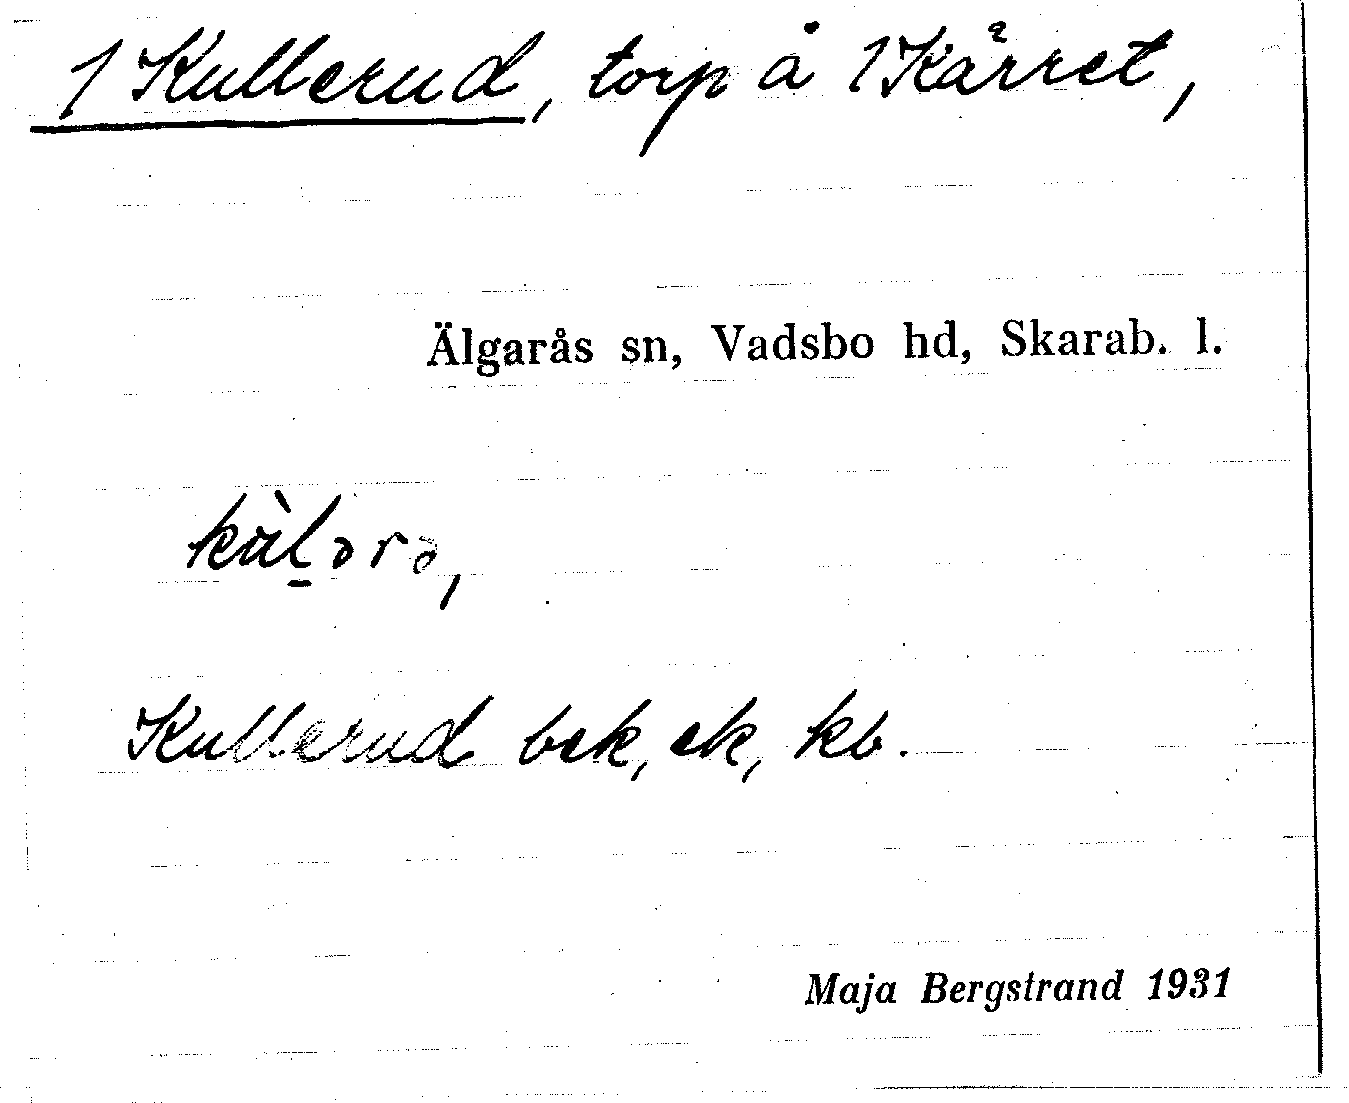 1 Kullerud, torp å 1 Kärret,
Älgarås sn, Vadsbo hd, Skarab. l.
Kullerud bek, ek, kb.
Maja Bergstrand 1931